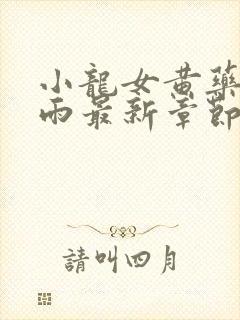 小龍女黄藥
雨最新章節
請叫四月